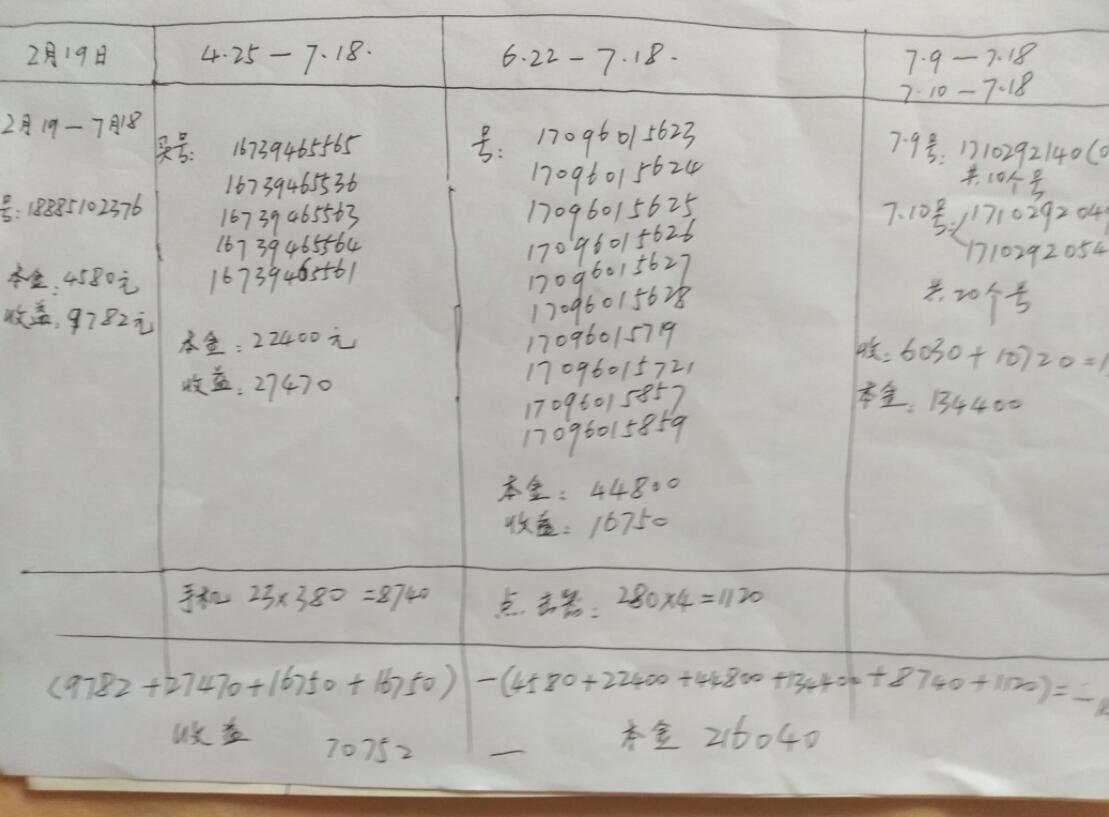 2月19日
4.25 — 7.18.
6.22 — 7.18.
7.9 — 7.18
7.10 — 7.18
2月19 — 7月18
号: 18885102376
本金: 4580元
收益: 9782元
买号: 16739465565
16739465536
16739465563
16739465564
16739465561
本金: 22400元
收益: 27470
号: 17096015623
17096015624
17096015625
17096015626
17096015627
17096015628
1709601579
17096015721
17096015857
17096015859
本金: 44800
收益: 16750
7.9号: 1710292140(0
共10个号
7.10号: 171029204
1710292054
共20个号
收: 6030+10720=1
本金: 134400
手机 23×380=8740
点击器: 280×4=1120
(9782+27470+16750+16750) —(4580+22400+44800+134400+8740+1120)=—
收益 70752 — 本金 216040